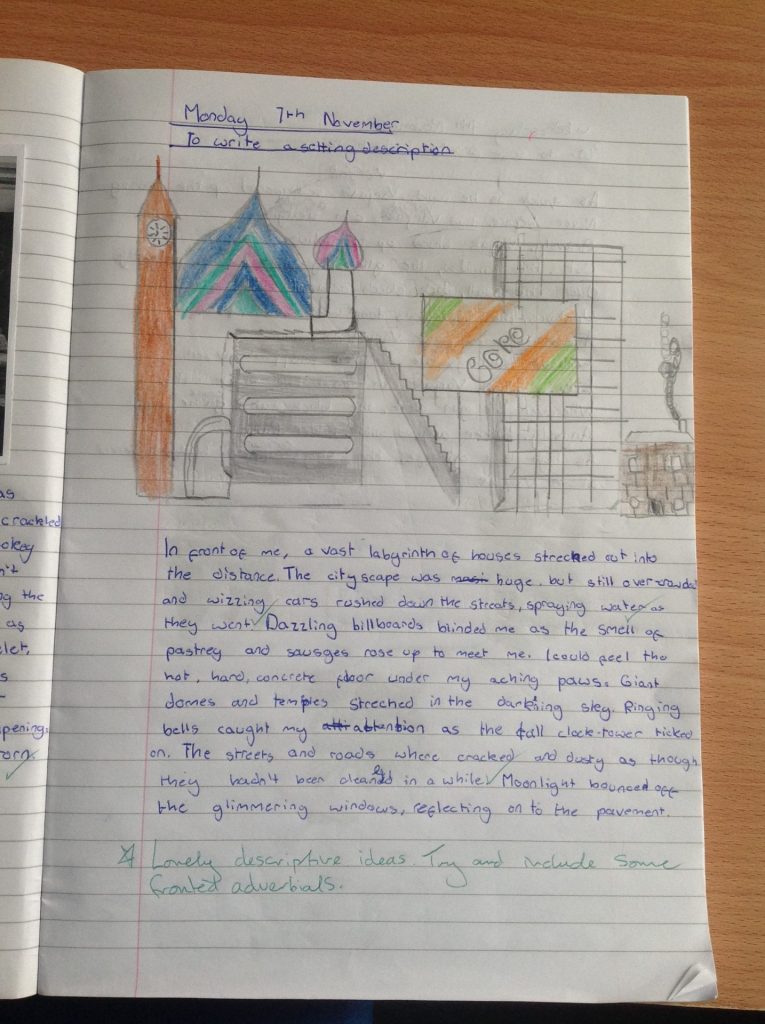 Monday 7th November
To write a setting description
Coke
In front of me, a vast labyrinth of houses streched out into
the distance. The cityscape was huge. but still overcrowded
and wizzing cars rushed down the streets, spraying water as
they went. Dazzling billboards blinded me as the smell of
pastrey and sausges rose up to meet me. I could feel the
hot, hard, concrete floor under my aching paws. Giant
domes and temples streched in the darkning sky. Ringing
bells caught my attention as the tall clock-tower ticked
on. The streets and roads where cracked and dusty as though
they hadn't been cleaned in a while. Moonlight bounced off
the glimmering windows, reflecting on to the pavement.
Lovely descriptive ideas. Try and include some
fronted adverbials.
as
crackled
okey
n't
g the
as
let,
s
pening.
orn.